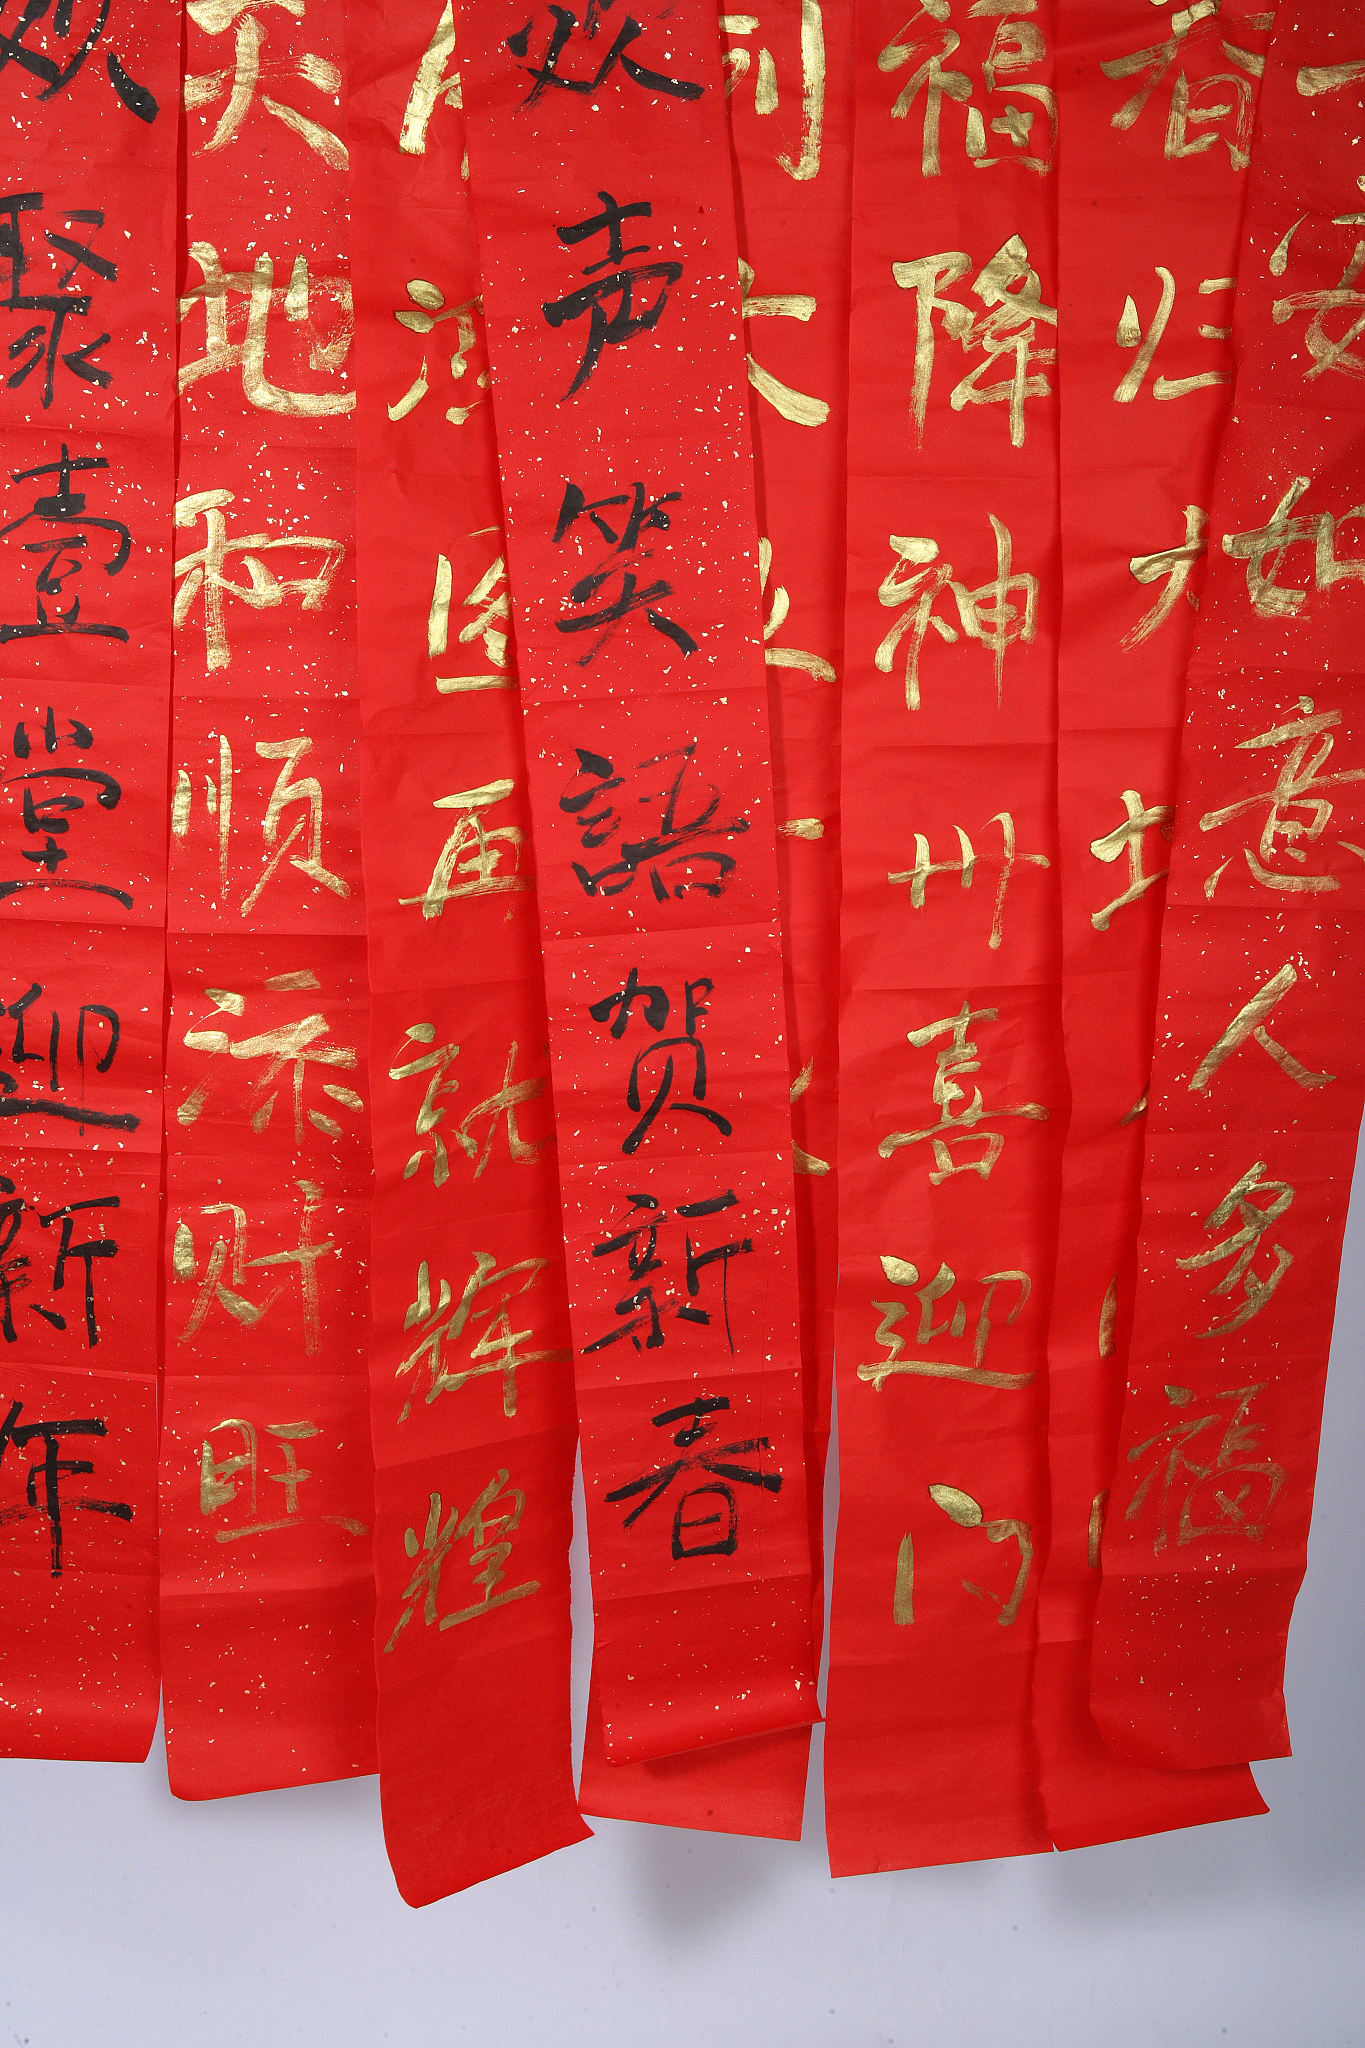 聚壹堂迎新年
天地和顺添财旺
图再就辉煌
欢声笑語贺新春
福降神州喜迎门
春归大地
安如意人多福